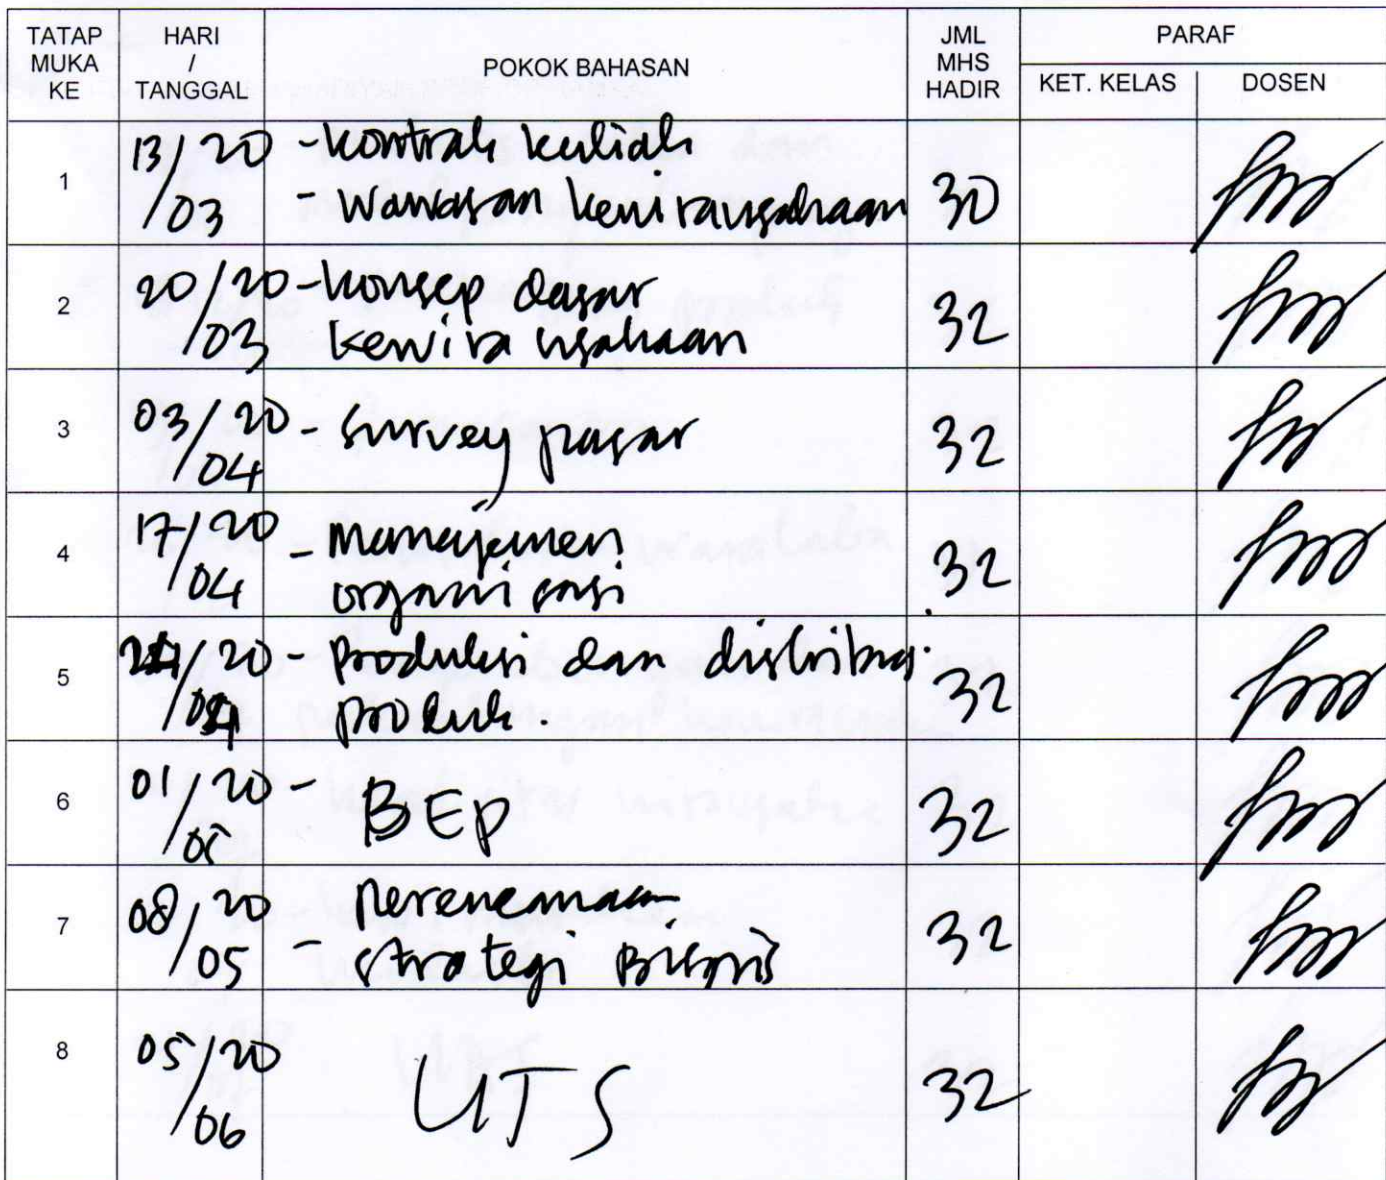 TATAP MUKA KE HARI / TANGGAL POKOK BAHASAN JML MHS HADIR PARAF
KET. KELAS DOSEN
1 13/20 /03 - kontrak kuliah 30
- Wawasan kewirausahaan
2 20/20 /03 - konsep dasar 32
kewira usahaan
3 03/20 /04 - survey pasar 32
4 17/20 /04 - Manajemen 32
organisasi
5 24/20 /04 - Produksi dan distribusi 32
produk.
6 01/20 /05 - BEP 32
7 08/20 /05 - perencanaan 32
strategi Bisnis
8 05/20 /06 UTS 32